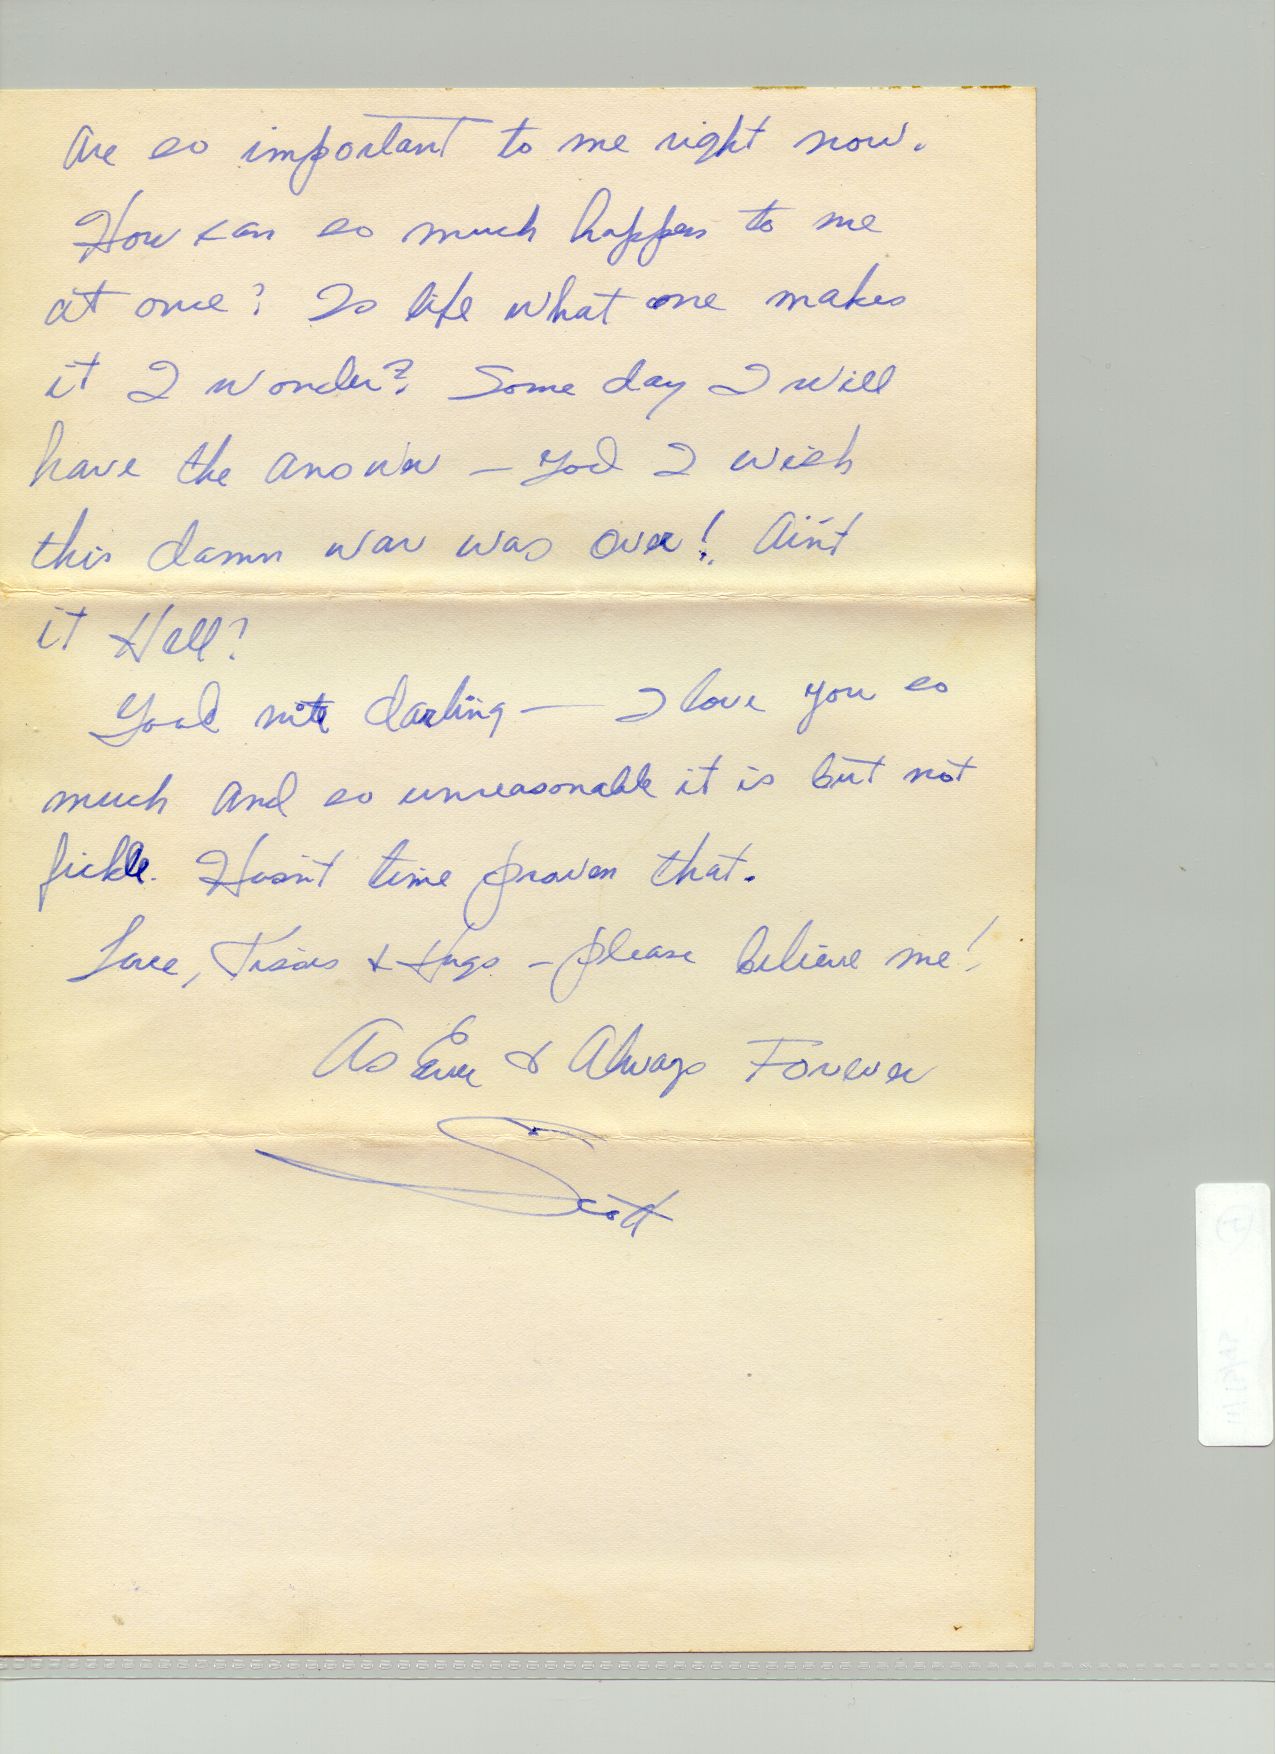 are so important to me right now.
How can so much happen to me
at once? Is life what one makes
it I wonder? Some day I will
have the answer — God I wish
this damn war was over! Ain't
it Hell?
Good nite darling — I love you so
much and so unreasonable it is but not
fickle. Hasn't time proven that.
Love, Kisses & Hugs — please believe me!
As Ever & Always Forever
Scott